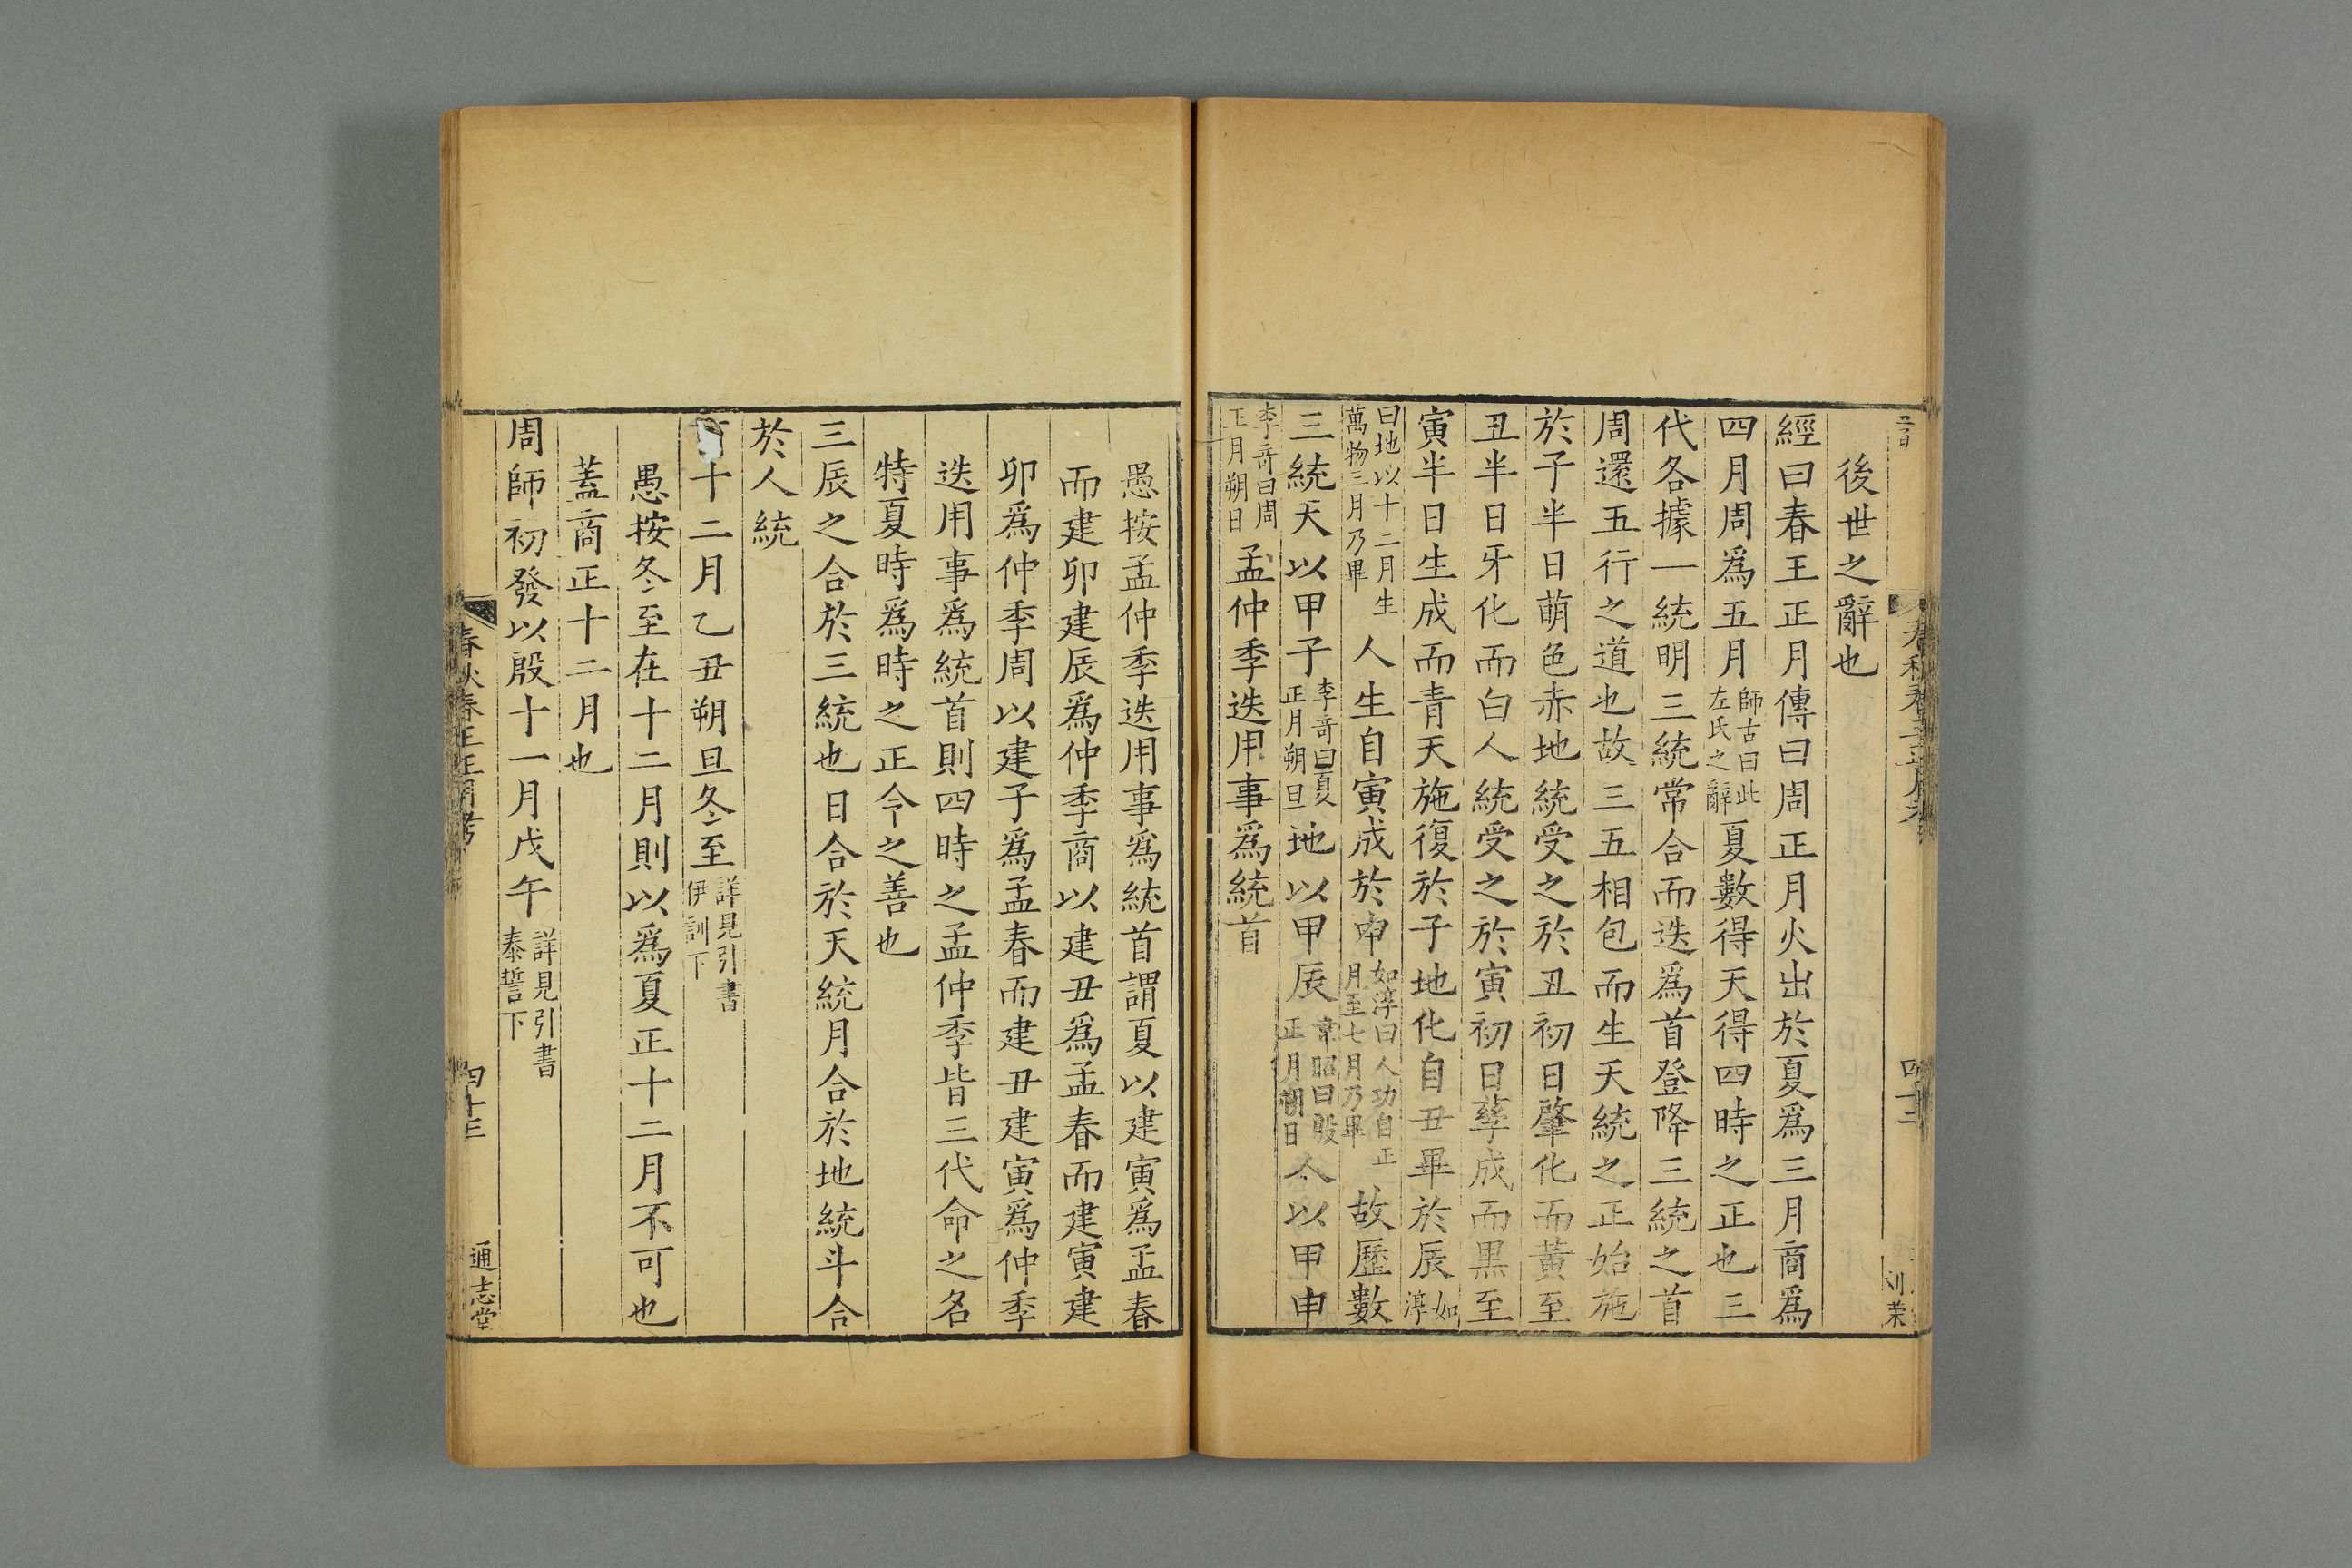 後世之辭也
經曰春王正月傳曰周正月火出於夏爲三月商爲
四月周爲五月師古曰此左氏之辭夏數得天得四時之正也三
代各據一統明三統常合而迭爲首登降三統之首
周還五行之道也故三五相包而生天統之正始施
於子半日萌色赤地統受之於丑初日肇化而黃至
丑半日牙化而白人統受之於寅初日孳成而黑至
寅半日生成而青天施復於子地化自丑畢於辰如淳
曰地以十二月生萬物三月乃畢人生自寅成於申如淳曰人功自正月至七月乃畢故歷數
三統天以甲子李奇曰夏正月朔旦地以甲辰韋昭曰殷正月朔日人以甲申
李奇曰周正月朔日孟仲季迭用事爲統首
愚按孟仲季迭用事爲統首謂夏以建寅爲孟春
而建卯建辰爲仲季商以建丑爲孟春而建寅建
卯爲仲季周以建子爲孟春而建丑建寅爲仲季
迭用事爲統首則四時之孟仲季皆三代命之名
特夏時爲時之正令之善也
三辰之合於三統也日合於天統月合於地統斗合
於人統
十二月乙丑朔旦冬至詳見引書伊訓下
愚按冬至在十二月則以爲夏正十二月不可也
蓋商正十二月也
周師初發以殷十一月戊午詳見引書泰誓下
春秋春王正月考
四十三
通志堂